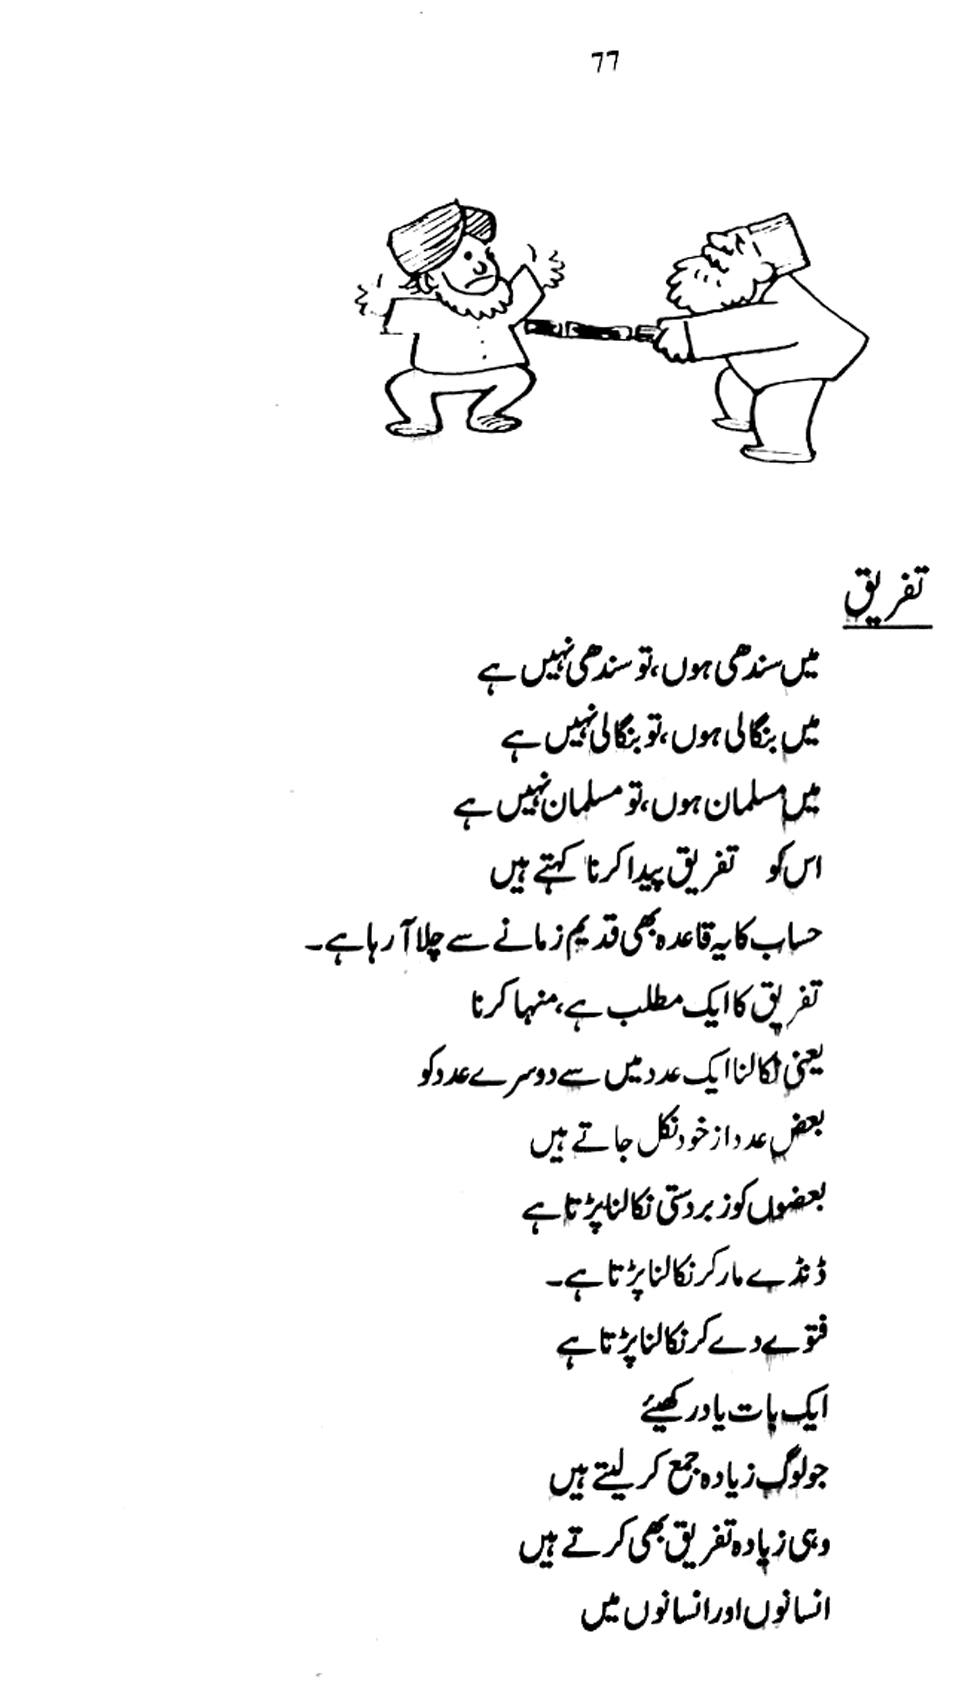 77
تفریق
میں سندھی ہوں، تو سندھی نہیں ہے
میں بنگالی ہوں، تو بنگالی نہیں ہے
میں مسلمان ہوں، تو مسلمان نہیں ہے
اس کو تفریق پیدا کرنا کہتے ہیں
حساب کا یہ قاعدہ بھی قدیم زمانے سے چلا آ رہا ہے۔
تفریق کا ایک مطلب ہے، منہا کرنا
یعنی نکالنا ایک عدد میں سے دوسرے عدد کو
بعض عدد از خود نکل جاتے ہیں
بعضوں کو زبردستی نکالنا پڑتا ہے
ڈنڈے مار کر نکالنا پڑتا ہے۔
فتوے دے کر نکالنا پڑتا ہے
ایک بات یاد رکھیئے
جو لوگ زیادہ جمع کر لیتے ہیں
وہی زیادہ تفریق بھی کرتے ہیں
انسانوں اور انسانوں میں